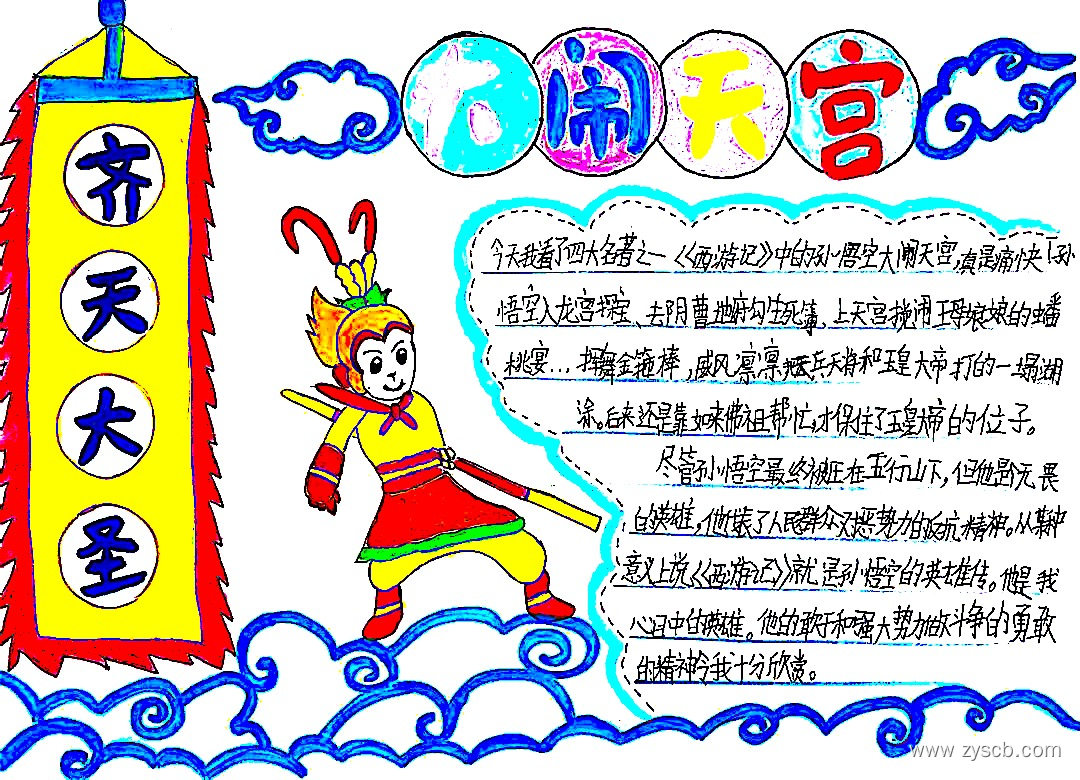 大闹天宫
齐
天
大
圣
今天我看了四大名著之一《西游记》中的孙悟空大闹天宫,真是痛快!孙
悟空入龙宫探宝、去阴曹地府勾生死簿、上天宫搅闹王母娘娘的蟠
桃宴...挥舞金箍棒,威风凛凛把天兵天将和玉皇大帝打的一塌湖
涂。后来还是靠如来佛祖帮忙,才保住了玉皇大帝的位子。
尽管孙悟空最终被压在五行山下,但他是无畏
的英雄,他代表了人民群众对恶势力的反抗精神。从某种
意义上说《西游记》就是孙悟空的英雄传。他是我
心目中的英雄。他的敢于和强大势力做斗争的勇敢
的精神令我十分欣赏。
www.zyscb.com